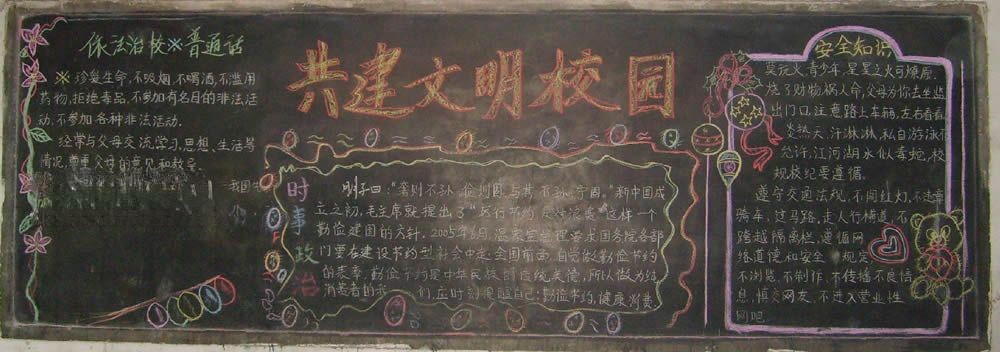 依法治校※普通话
※ 珍爱生命,不吸烟,不喝酒,不滥用
药物,拒绝毒品,不参加有名目的非法活
动,不参加各种非法活动.
经常与父母交流学习,思想,生活等
情况,尊重父母的意见和教导
我国
们
共建文明校园
时事政治
成立之初,毛主席就提出了"厉行节约 反对浪费"这样一个
勤俭建国的方针. 2005年6月 温家宝总理要求国务院各部
门要在建设节约型社会中走全国前面,自觉做勤俭节约
的表率,勤俭节约是中华民族的传统美德,所以做为
消费者的 们,应时刻提醒自己:勤俭节约,健康消费
安全知识
莫玩火,青少年,星星之火可燎原.
烧了财物祸人命,父母为你去坐监
出门口,注意路上车辆,左右看看
炎热天,汗淋淋,私自游泳不
允许,江河湖水似毒蛇,校
规校纪要遵循.
遵守交通法规,不闯红灯,不违章
骑车,过马路,走人行横道,不
跨越隔离栏,遵循网
络道德和安全 规定
不浏览,不制作,不传播不良信
息,慎交网友,不进入营业性
网吧